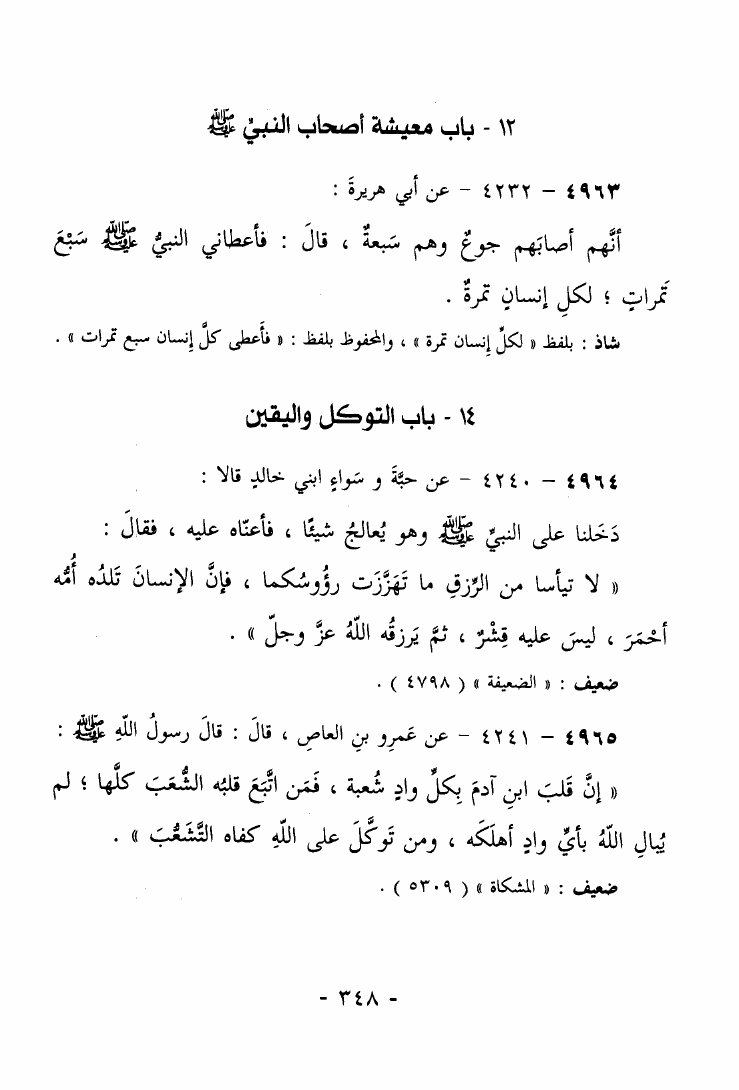 ١٢ - باب معيشة أصحاب النبيِّ ﷺ
٤٩٦٣ – ٤٢٣٢ – عن أبي هريرةَ :
أنَّهم أصابَهم جوعٌ وهم سَبعةٌ ، قالَ : فأعطاني النبيُّ ﷺ سَبْعَ
تَمراتٍ ؛ لكلِ إنسانٍ تمرةٌ .
شاذ : بلفظ « لكلِّ إنسان تمرة » ، والمحفوظ بلفظ : « فأَعطى كلَّ إنسان سبع تمرات » .
١٤ - باب التوكل واليقين
٤٩٦٤ – ٤٢٤٠ – عن حبَّةَ و سَواءٍ ابني خالدٍ قالا :
دَخَلنا على النبيِّ ﷺ وهو يُعالجُ شيئًا ، فأعنّاه عليه ، فقالَ :
« لا تيأسا من الرِّزقِ ما تَهَزَّزَت رؤُوسُكما ، فإنَّ الإنسانَ تَلدُه أُمُّه
أحْمَرَ ، ليسَ عليه قِشْرٌ ، ثمَّ يَرزقُه اللّهُ عزَّ وجلّ » .
ضعيف : « الضعيفة » ( ٤٧٩٨ ) .
٤٩٦٥ – ٤٢٤١ – عن عَمرِو بنِ العاصِ ، قالَ : قالَ رسولُ اللّهِ ﷺ :
« إنَّ قَلبَ ابنِ آدمَ بِكلِّ وادٍ شُعبة ، فَمَن اتَّبَعَ قلبُه الشُّعَبَ كلَّها ؛ لم
يُبالِ اللّهُ بأيِّ وادٍ أهلَكَه ، ومن تَوكَّلَ على اللّهِ كفاه التَّشَعُّبَ » .
ضعيف : « المشكاة » ( ٥٣٠٩ ) .
- ٣٤٨ -